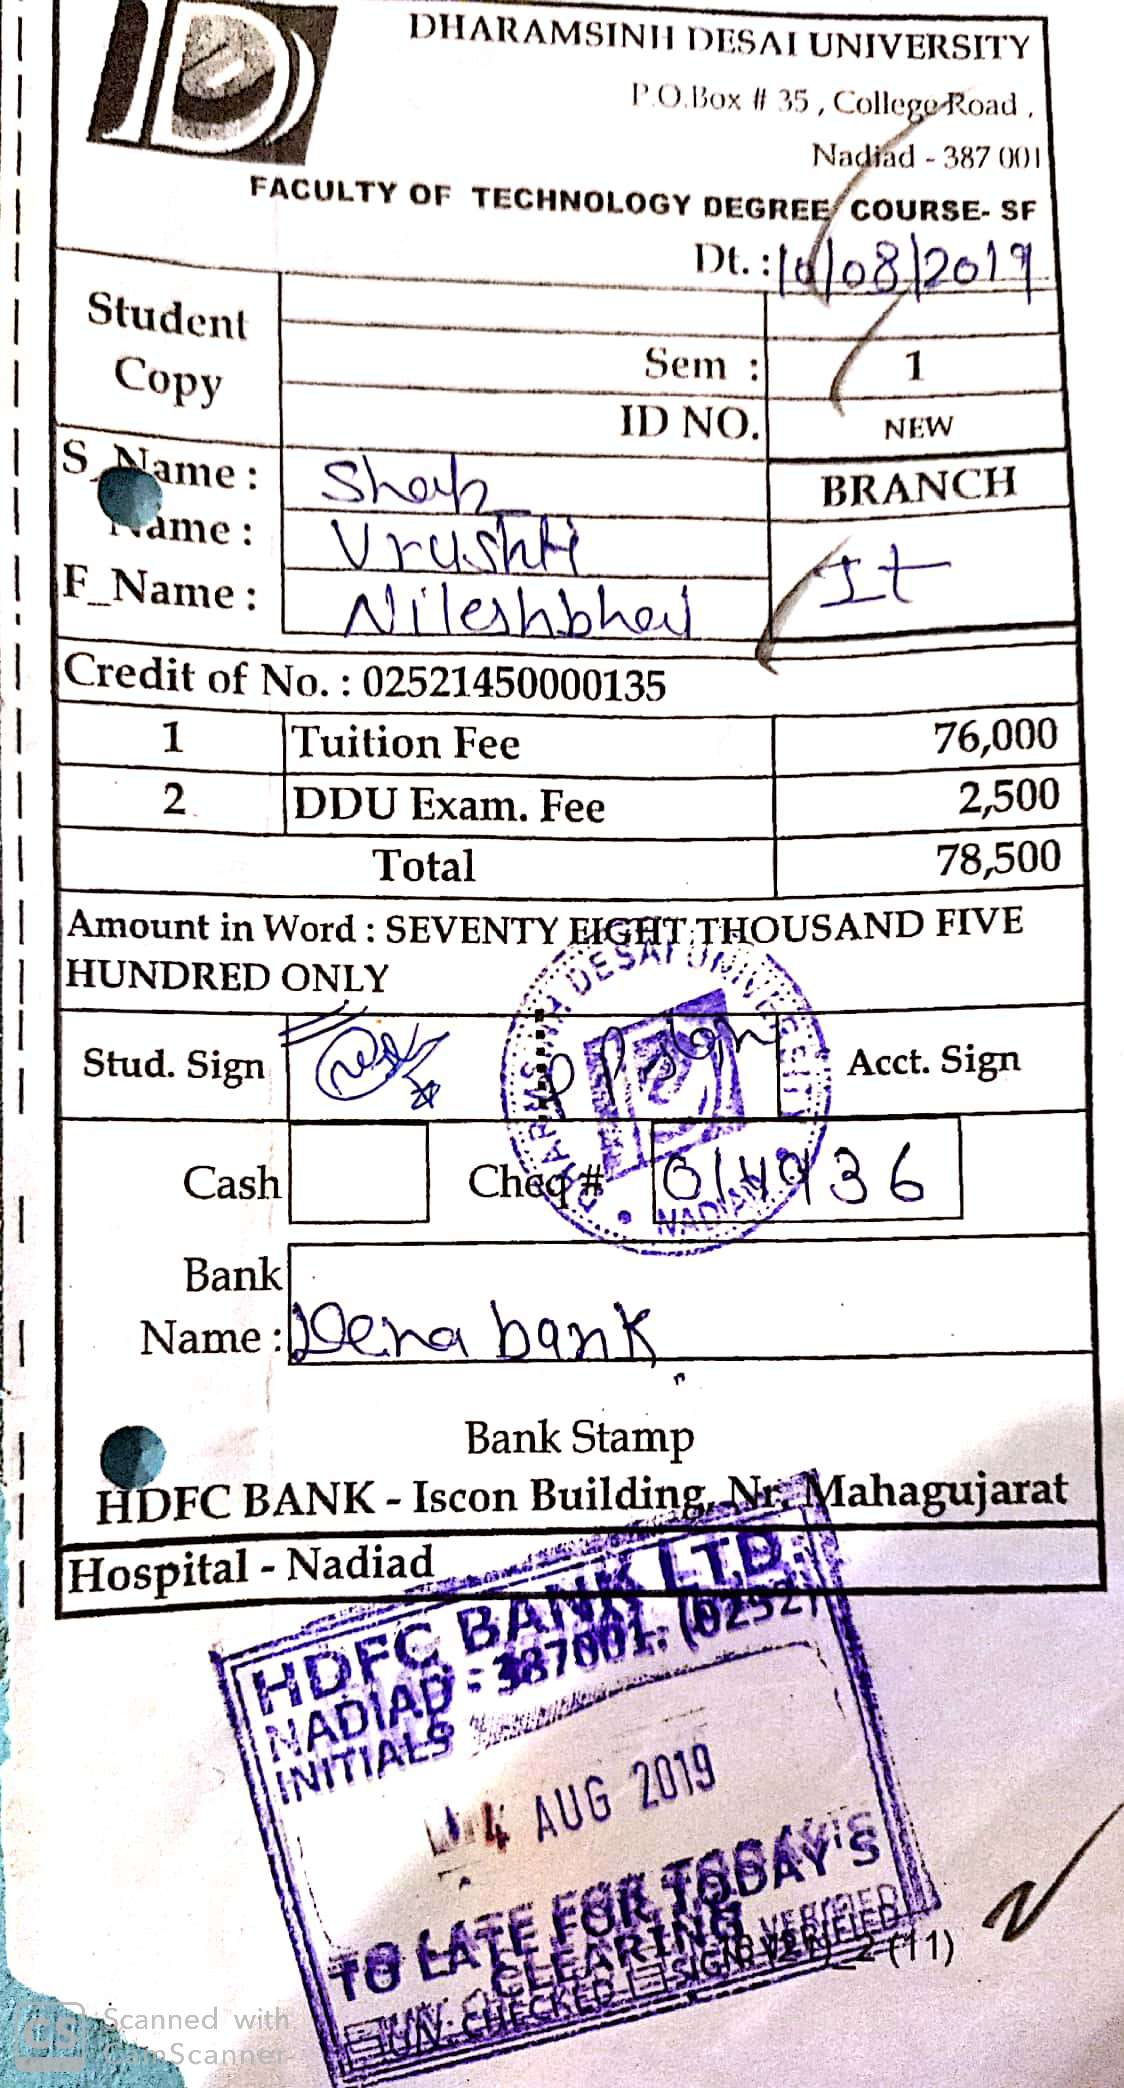 DHARAMSINH DESAI UNIVERSITY
P.O.Box # 35 , College Road ,
Nadiad - 387 001
FACULTY OF TECHNOLOGY DEGREE COURSE- SF
Dt. : 10/08/2019
Student Copy
Sem : 1
ID NO. NEW
S_Name : Shah
BRANCH
Name : Vrushti
It
F_Name : Nileshbhai
Credit of No. : 02521450000135
1 Tuition Fee 76,000
2 DDU Exam. Fee 2,500
Total 78,500
Amount in Word : SEVENTY EIGHT THOUSAND FIVE
HUNDRED ONLY
DHARMSINH DESAI UNIVERSITY
NADIAD
Stud. Sign
Acct. Sign
Cash Cheq # 014936
Bank
Name : Dena bank
Bank Stamp
HDFC BANK - Iscon Building, Nr. Mahagujarat
Hospital - Nadiad
HDFC BANK LTD.
NADIAD - 387001. (0252)
INITIALS
14 AUG 2019
TO LATE FOR TODAY'S
CLEARING
SIGN VERIFIED
2 (11)
CS Scanned with
CamScanner